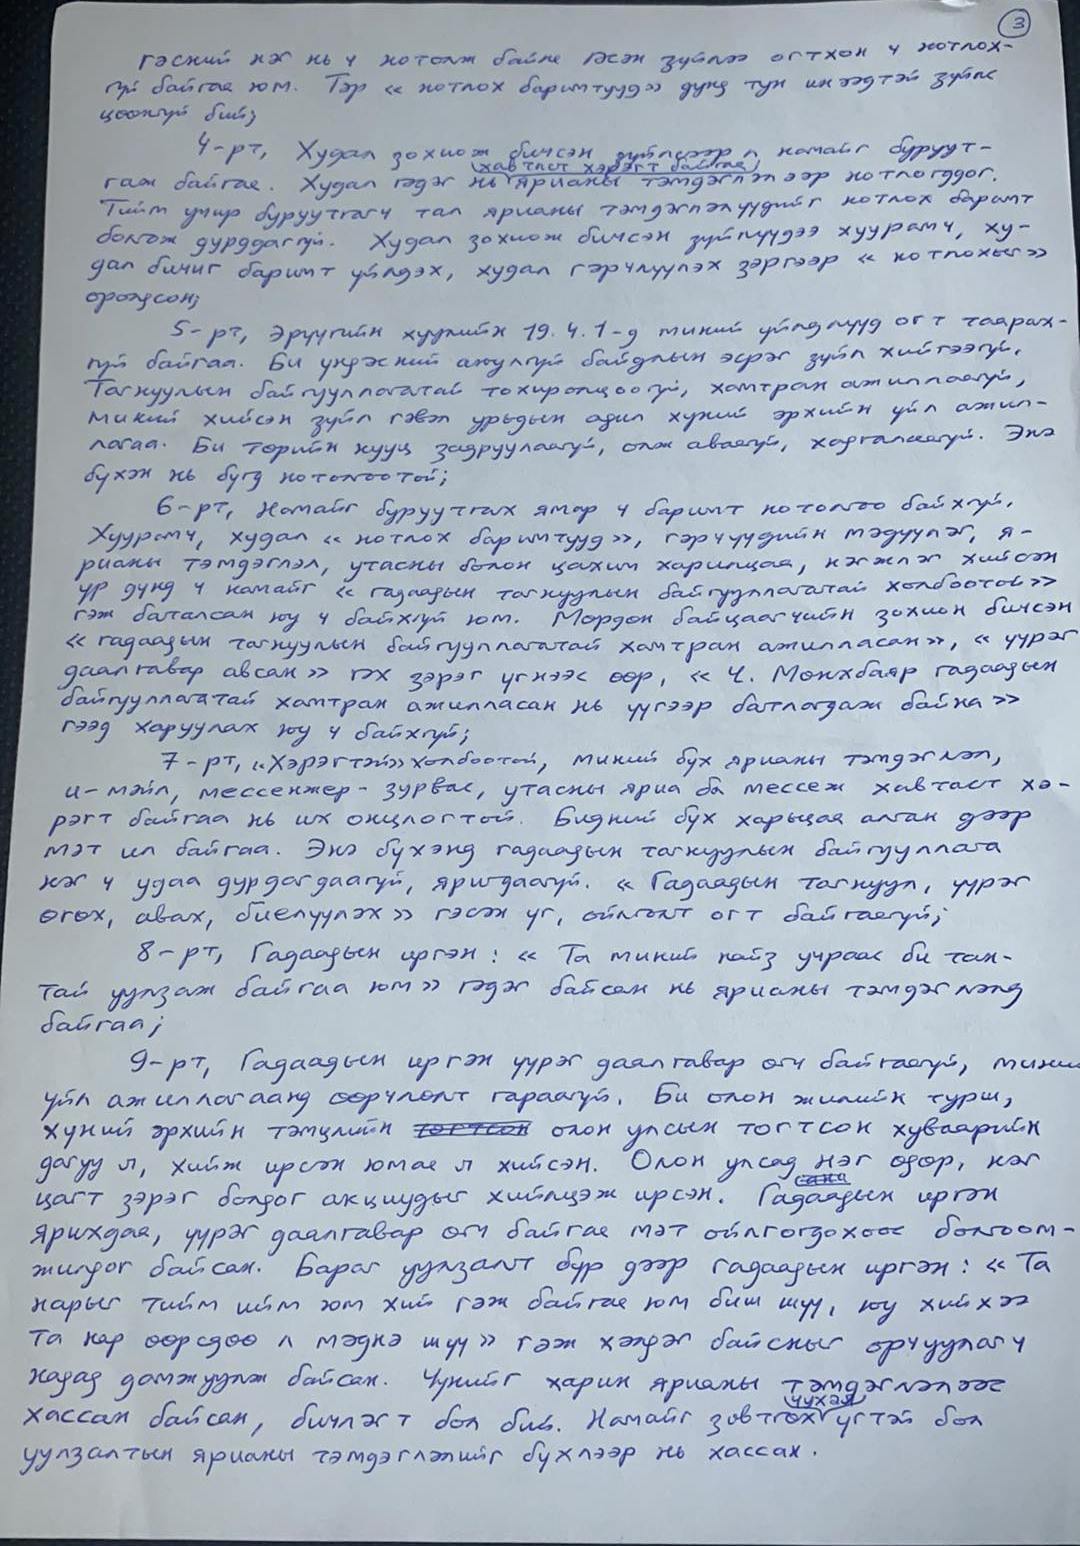 3
гэсний нэг нь ч нотолж байна гэсэн зүйлээ огтхон ч нотлох-
гүй байгаа юм. Тэр «нотлох баримтууд» дунд тун инээдтэй зүйлс
цөөнгүй бий;
4-рт, Худал зохиож бичсэн зүйлсээр л намайг буруут-
(хавтаст хэрэгт байгаа)
гаж байгаа. Худал гэдэг нь ярианы тэмдэглэлээр нотлогддог.
Тийм учир буруутгагч тал ярианы тэмдэглэлүүдийг нотлох баримт
болгож дурддаггүй. Худал зохиож бичсэн зүйлүүдээ хуурамч, ху-
дал бичиг баримт үйлдэх, худал гэрчлүүлэх зэргээр «нотлохыг»
оролдсон;
5-рт, Эрүүгийн хуулийн 19.4.1-д миний үйлдлүүд огт таарах-
гүй байгаа. Би үндэсний аюулгүй байдлын эсрэг зүйл хийгээгүй,
Тагнуулын байгууллагатай тохиролцоогүй, хамтран ажиллаагүй,
миний хийсэн зүйл гэвэл урьдын адил хүний эрхийн үйл ажил-
лагаа. Би төрийн нууц задруулаагүй, олж аваагүй, хадгалаагүй. Энэ
бүхэн нь бүгд нотолгоотой;
6-рт, Намайг буруутгах ямар ч баримт нотолгоо байхгүй.
Хуурамч, худал «нотлох баримтууд», гэрчүүдийн мэдүүлэг, я-
рианы тэмдэглэл, утасны болон цахим харилцаа, нэгжлэг хийсэн
үр дүнд ч намайг «гадаадын тагнуулын байгууллагатай холбоотой»
гэж баталсан юу ч байхгүй юм. Мөрдөн байцаагчийн зохион бичсэн
«гадаадын тагнуулын байгууллагатай хамтран ажилласан», «үүрэг
даалгавар авсан» гэх зэрэг үгнээс өөр, «Ч. Мөнхбаяр гадаадын
байгууллагатай хамтран ажилласан нь үүгээр батлагдаж байна»
гээд харуулах юу ч байхгүй;
7-рт, «Хэрэгтэй» холбоотой, миний бүх ярианы тэмдэглэл,
и-мэйл, мессенжер-зурвас, утасны яриа ба мессеж хавтаст хэ-
рэгт байгаа нь их онцлогтой. Бидний бүх харьцаа алган дээр
мэт ил байгаа. Энэ бүхэнд гадаадын тагнуулын байгууллага
нэг ч удаа дурдагдаагүй, яригдаагүй. «Гадаадын тагнуул, үүрэг
өгөх, авах, биелүүлэх» гэсэн үг, ойлголт огт байгаагүй;
8-рт, Гадаадын иргэн: «Та миний найз учраас би тан-
тай уулзаж байгаа юм» гэдэг байсан нь ярианы тэмдэглэлд
байгаа;
9-рт, Гадаадын иргэн үүрэг даалгавар өгч байгаагүй, миний
үйл ажиллагаанд өөрчлөлт гараагүй. Би олон жилийн турш,
хүний эрхийн тэмцлийн тогтсон олон улсын тогтсон хуваарийн
дагуу л, хийж ирсэн юмаа л хийсэн. Олон улсад нэг өдөр, нэг
цагт зэрэг болдог акциудыг хийлцэж ирсэн. Гадаадын иргэн
ярихдаа, үүрэг даалгавар өгч байгаа мэт ойлгогдохоос болгоом-
жилдог байсан. Бараг уулзалт бүр дээр гадаадын иргэн: «Та
нарыг тийм ийм юм хий гэж байгаа юм биш шүү, юу хийхээ
та нар өөрсдөө л мэднэ шүү» гэж хэлдэг байсныг орчуулагч
надад дамжуулж байсан. Үүнийг харин ярианы тэмдэглэлээс
хассан байсан, бичлэгт бол бий. Намайг зөвтгөх (чухал) үгтэй бол
уулзалтын ярианы тэмдэглэлийг бүхлээр нь хассан.